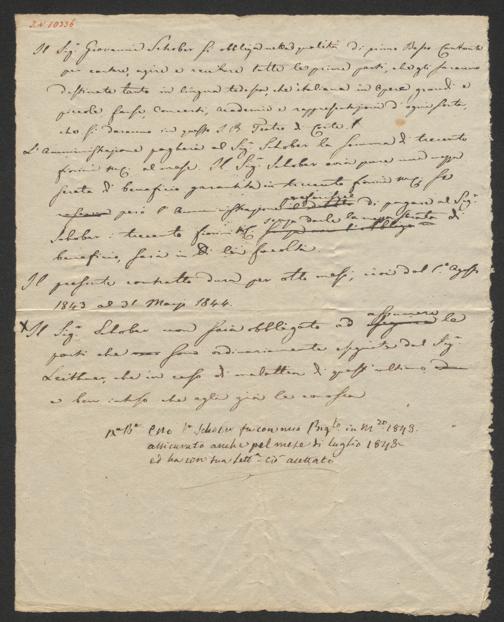 I.N. 10336
Il Sig. Giovanni Schober si obbliga nella qualità di primo Basso Cantante
per cantare, agire e recitare tutte le prime parti, che gli saranno
destinate tanto in lingua tedesca, che italiana in opere grandi e
piccole farse, concerti, accademie e rappresentazioni d'ogni sorta,
che si daranno in questo I R Teatro di Corte.
L'Amministrazione pagherà al Sig. Schober la somma di trecento
fiorini al mese. Il Sig. Schober avrà pure una mezza
serata di beneficio garantita in trecento fiorini Se
però l'Amministrazione preferisse di pagare al Sig.
Schober i trecento fiorini senza dargli la mezza serata di
beneficio, sarà in di lei facoltà.
Il presente contratto dura per otto mesi, cioè dal 1º Agosto
1843 al 31 Marzo 1844.
Il Sig. Schober non sarà obbligato ad assumere le
parti che sono ordinariamente eseguite dal Sig.
Leithner, che in caso di malattia di quest'ultimo,
e ben inteso che egli già le conosca
Schober fu con mio in 1843.
assicurato anche pel mese di luglio 1843
ed ha con sua ciò accettato